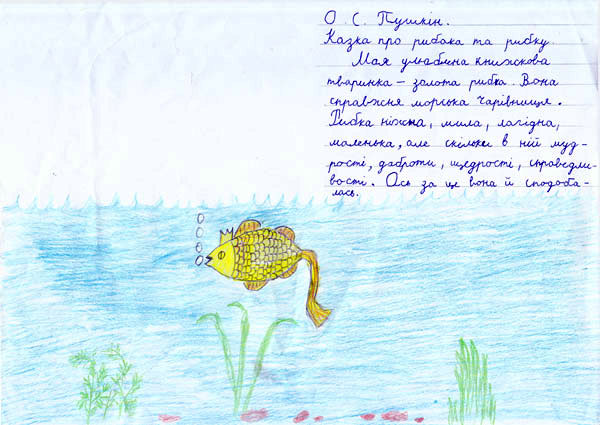 О. С. Пушкін.
Казка про рибака та рибку.
Моя улюблена книжкова
тваринка – золота рибка. Вона
справжня морська чарівниця.
Рибка ніжна, мила, лагідна,
маленька, але скільки в ній муд-
рості, доброти, щедрості, справедли-
вості. Ось за це вона й сподоба-
лась.